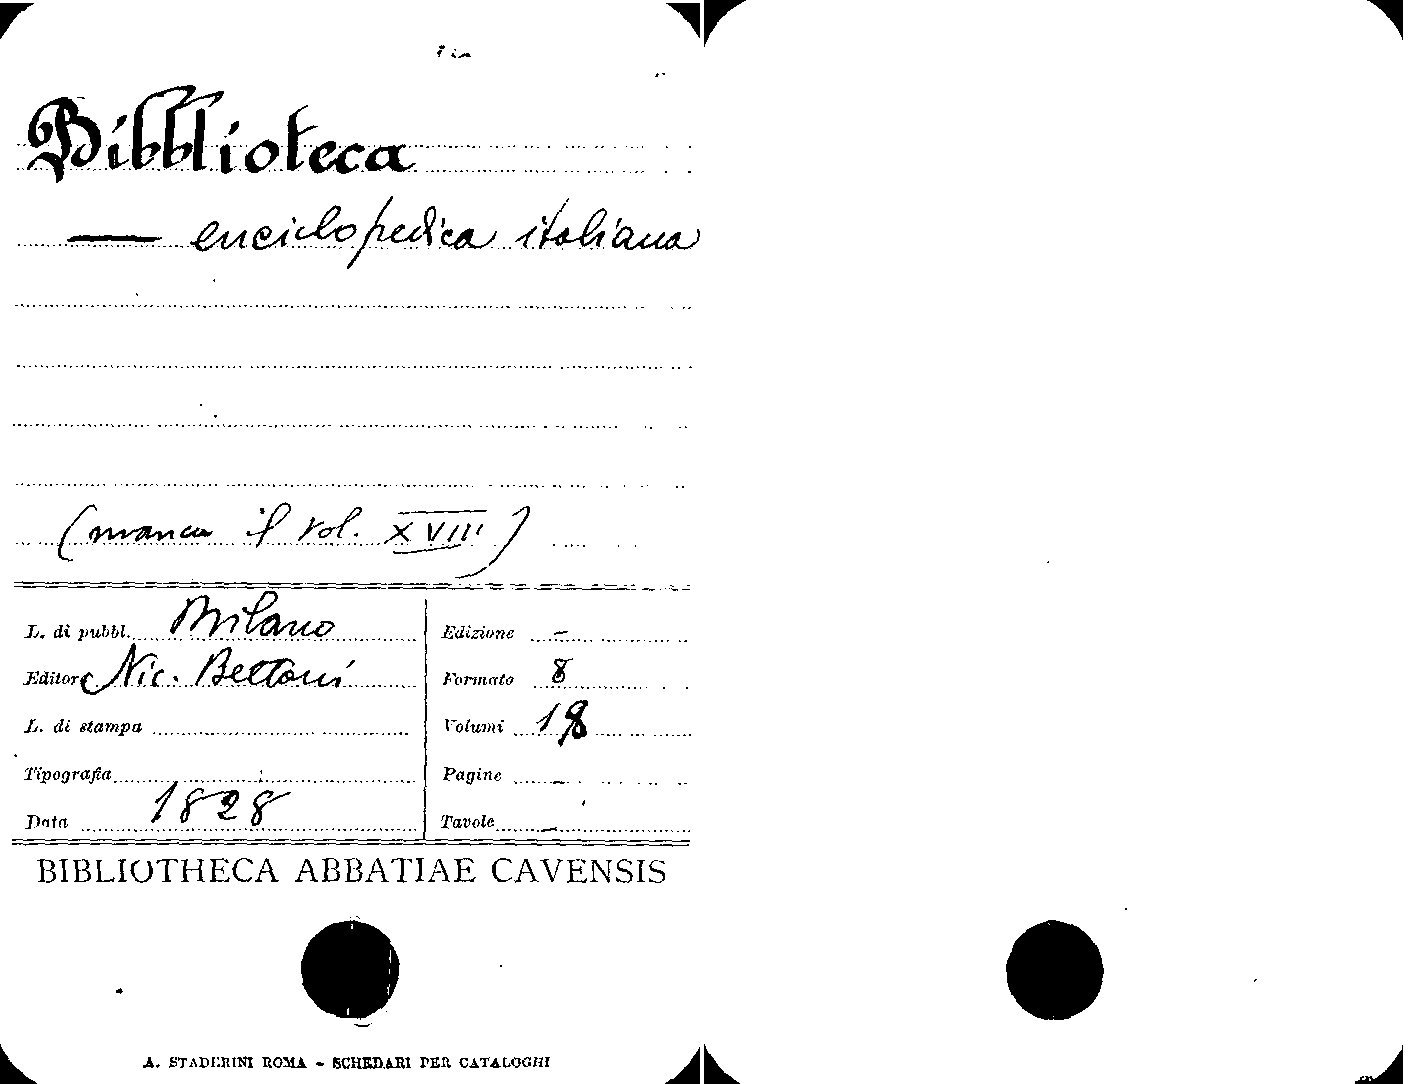 Bibblioteca
— enciclopedica italiana
(manca il vol. XVIII)
L. di pubbl. Milano
Editore Nic. Bettoni
L. di stampa
Tipografia
Data 1828
Edizione –
Formato 8
Volumi 18
Pagine –
Tavole –
BIBLIOTHECA ABBATIAE CAVENSIS
A. STADERINI ROMA - SCHEDARI PER CATALOGHI